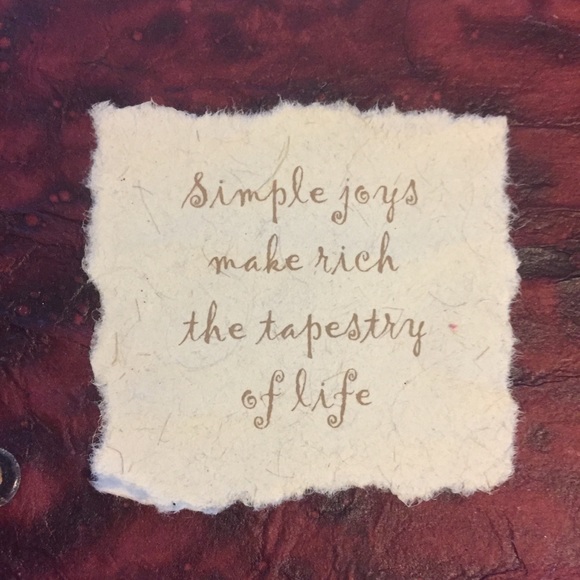 Simple joys
make rich
the tapestry
of life